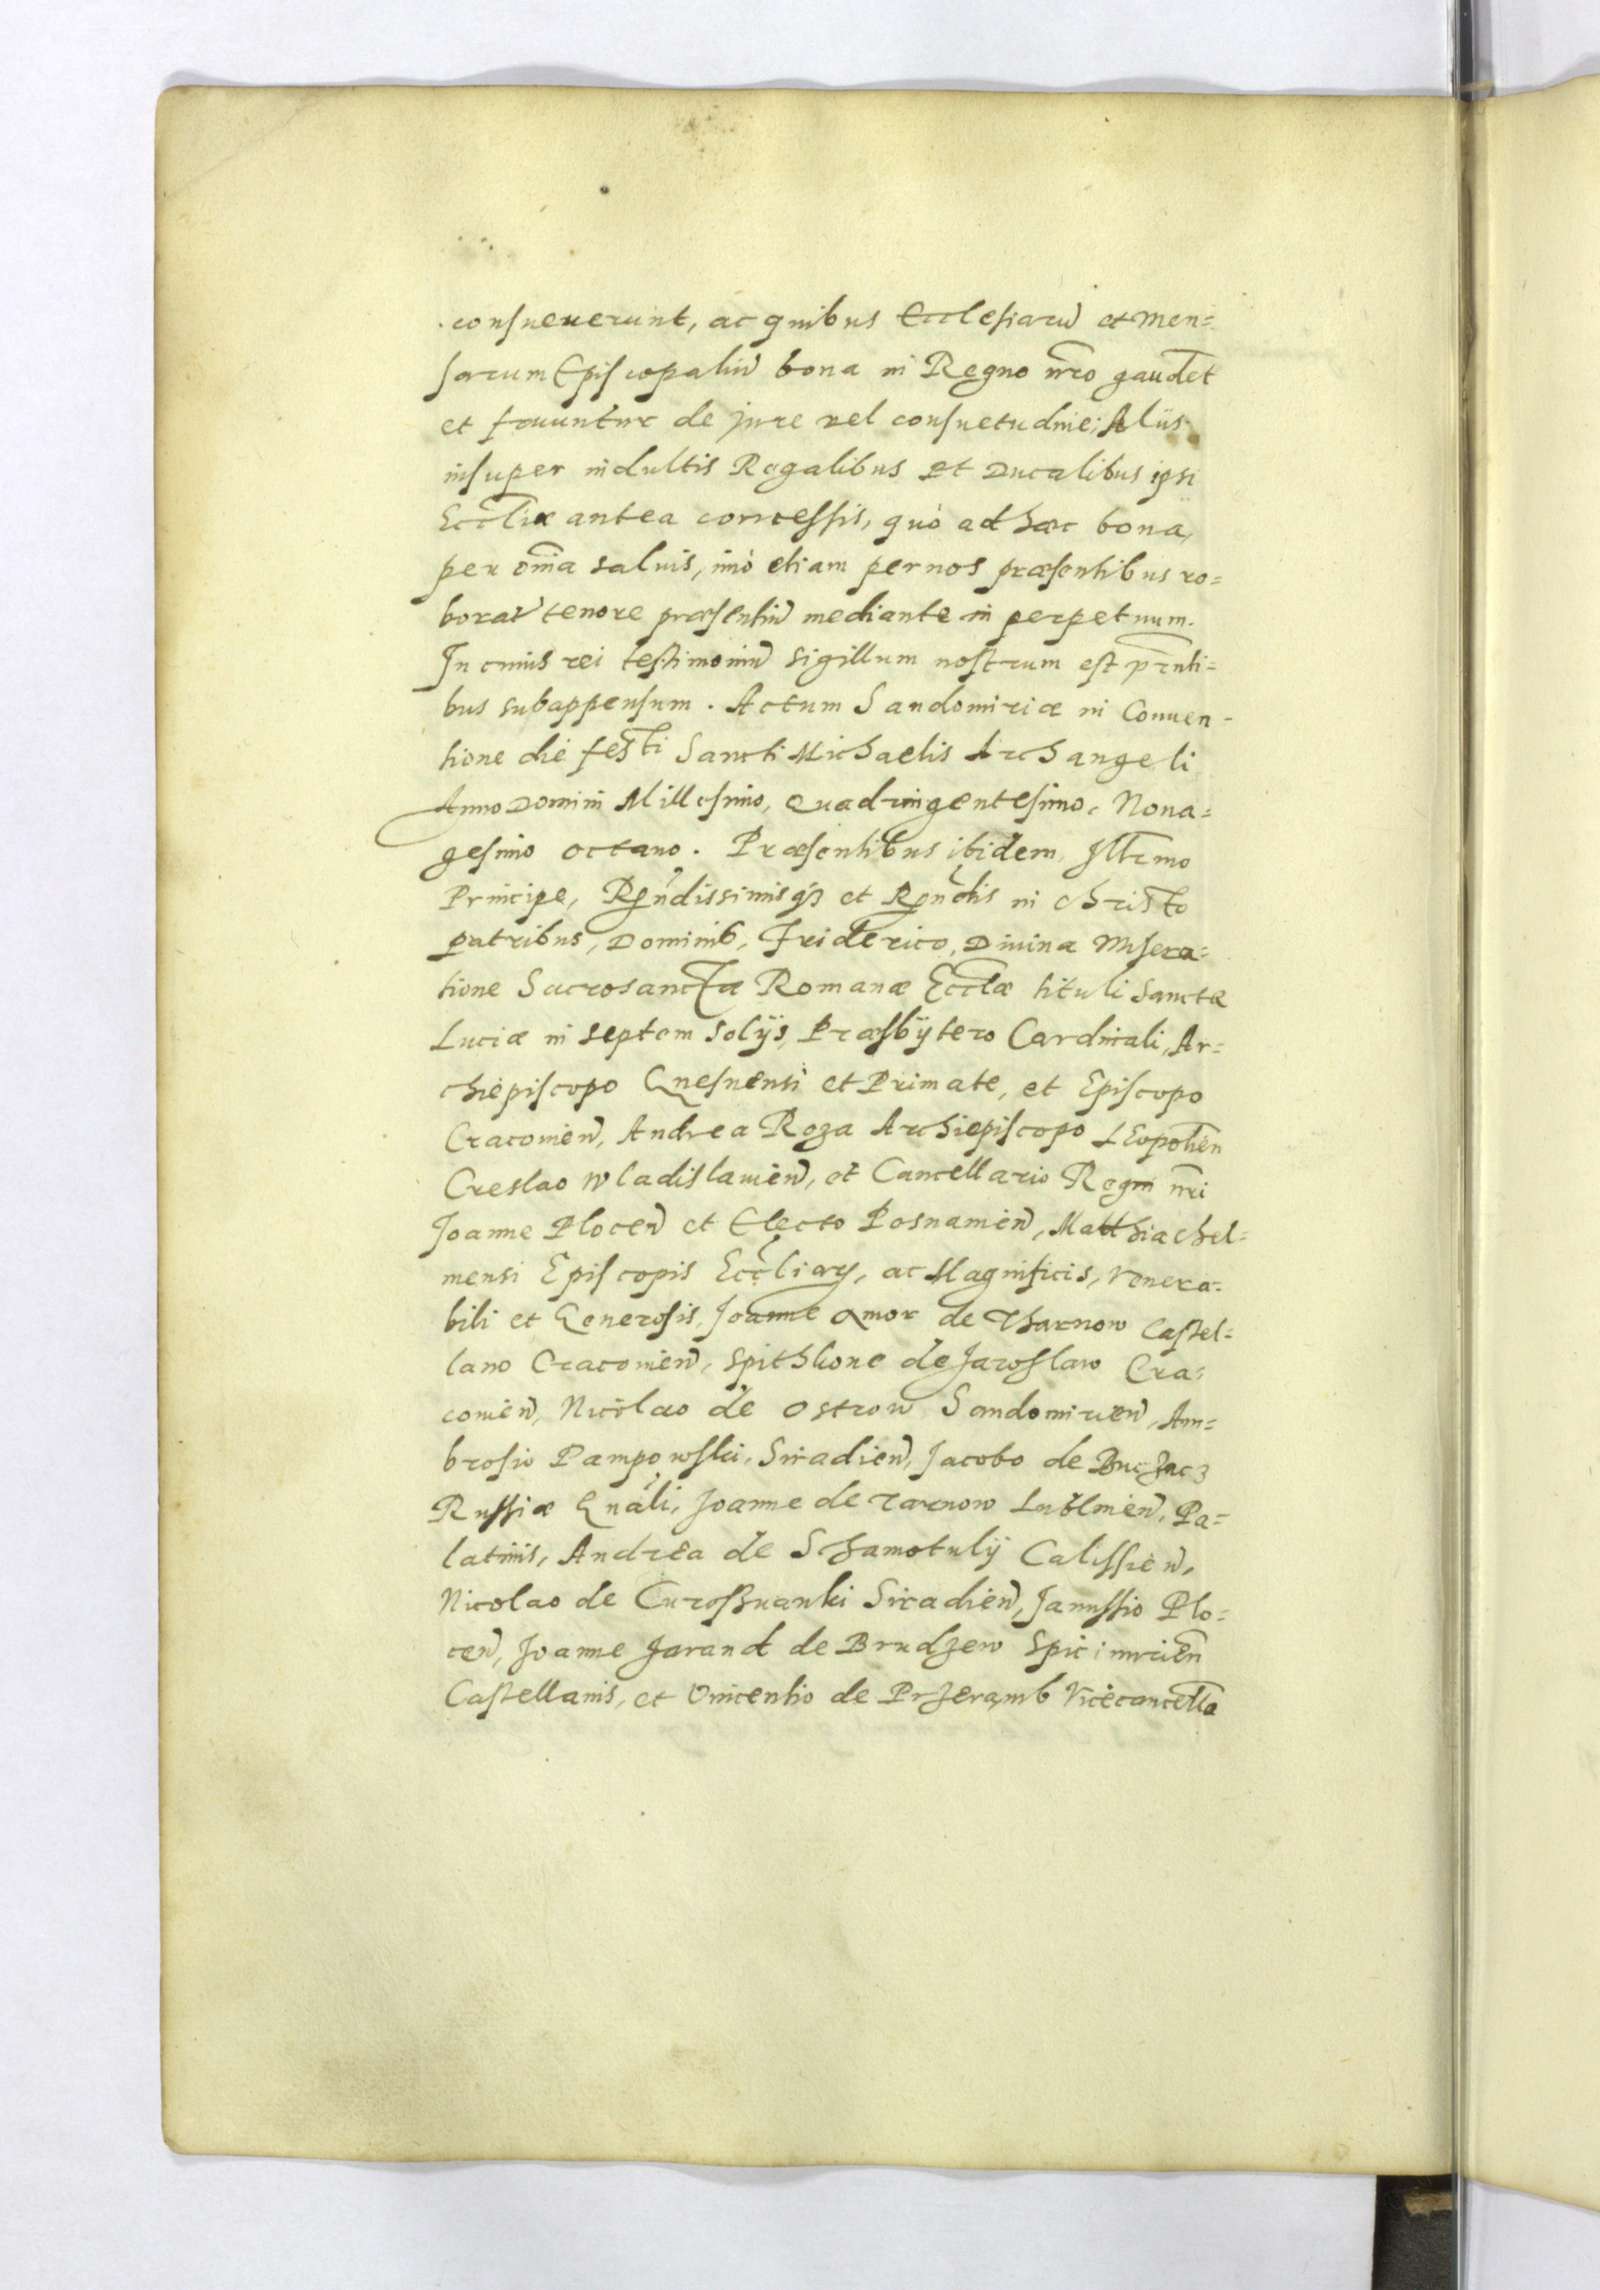 consueuerunt, ac quibus Ecclesiarū et Men=
sarum Episcopaliū bona in Regno nr̄o gaudēt
et fruuntur de jure vel consuetudine; Aliis
insuper indultis Regalibus et Ducalibus ipsi
Eccl̄iæ antea concessis, quò ad hæc bona,
per om̄ia saluis, imò etiam per nos præsentibus ro=
borat' tenore præsentiū mediante in perpetuum.
In cuius rei testimoniū sigillum nostrum est pr̄nti=
bus subappensum. Actum Sandomiriæ in Conuen=
tione die festi Sancti Michaelis Archangeli
Anno Domini Millesimo, Quadringentesimo, Nona=
gesimo octauo. Præsentibus ibidem, Ill̄rmo
Principe, Rṇdissimisqꝫ et Rṇdis in Christo
patribus, Dominib, Friderico, Diuina Misera=
tione Sacrosanctæ Romanæ Eccl̄æ tituli Sanctæ
Luciæ in septem Solijs, Præsbÿtero Cardinali, Ar=
chiepiscopo Gnesnensi et Primate, et Episcopo
Cracouien̄, Andrea Roza Archiepiscopo Leopolien̄
Creslao Wladislauien̄, et Cancellario Regni nr̄i
Joanne Plocen̄ et Electo Posnanien̄, Matthia Chel=
mensi Episcopis Eccl̄iaꝝ, ac Magnificis, Venera=
bili et Generosis, Joanne Amor de Tharnow Castel=
lano Cracouien̄, Spithkone de Jaroslaw Cra=
couien̄, Nicolao de Ostrow Sandomirien̄, Am=
brosio Pampowski, Siradien̄, Jacobo de Buczacz
Russiæ Gnāli, Joanne de Tarnow Lublinen̄, Pa=
latinis, Andrea de Schamotulÿ Calissien̄,
Nicolao de Curoßwanki Siradien̄, Janussio Plo=
cen̄, Joanne Jarand de Brudzew Spicimirien̄
Castellanis, et Vincentio de Przeramb Vicecancell̄o